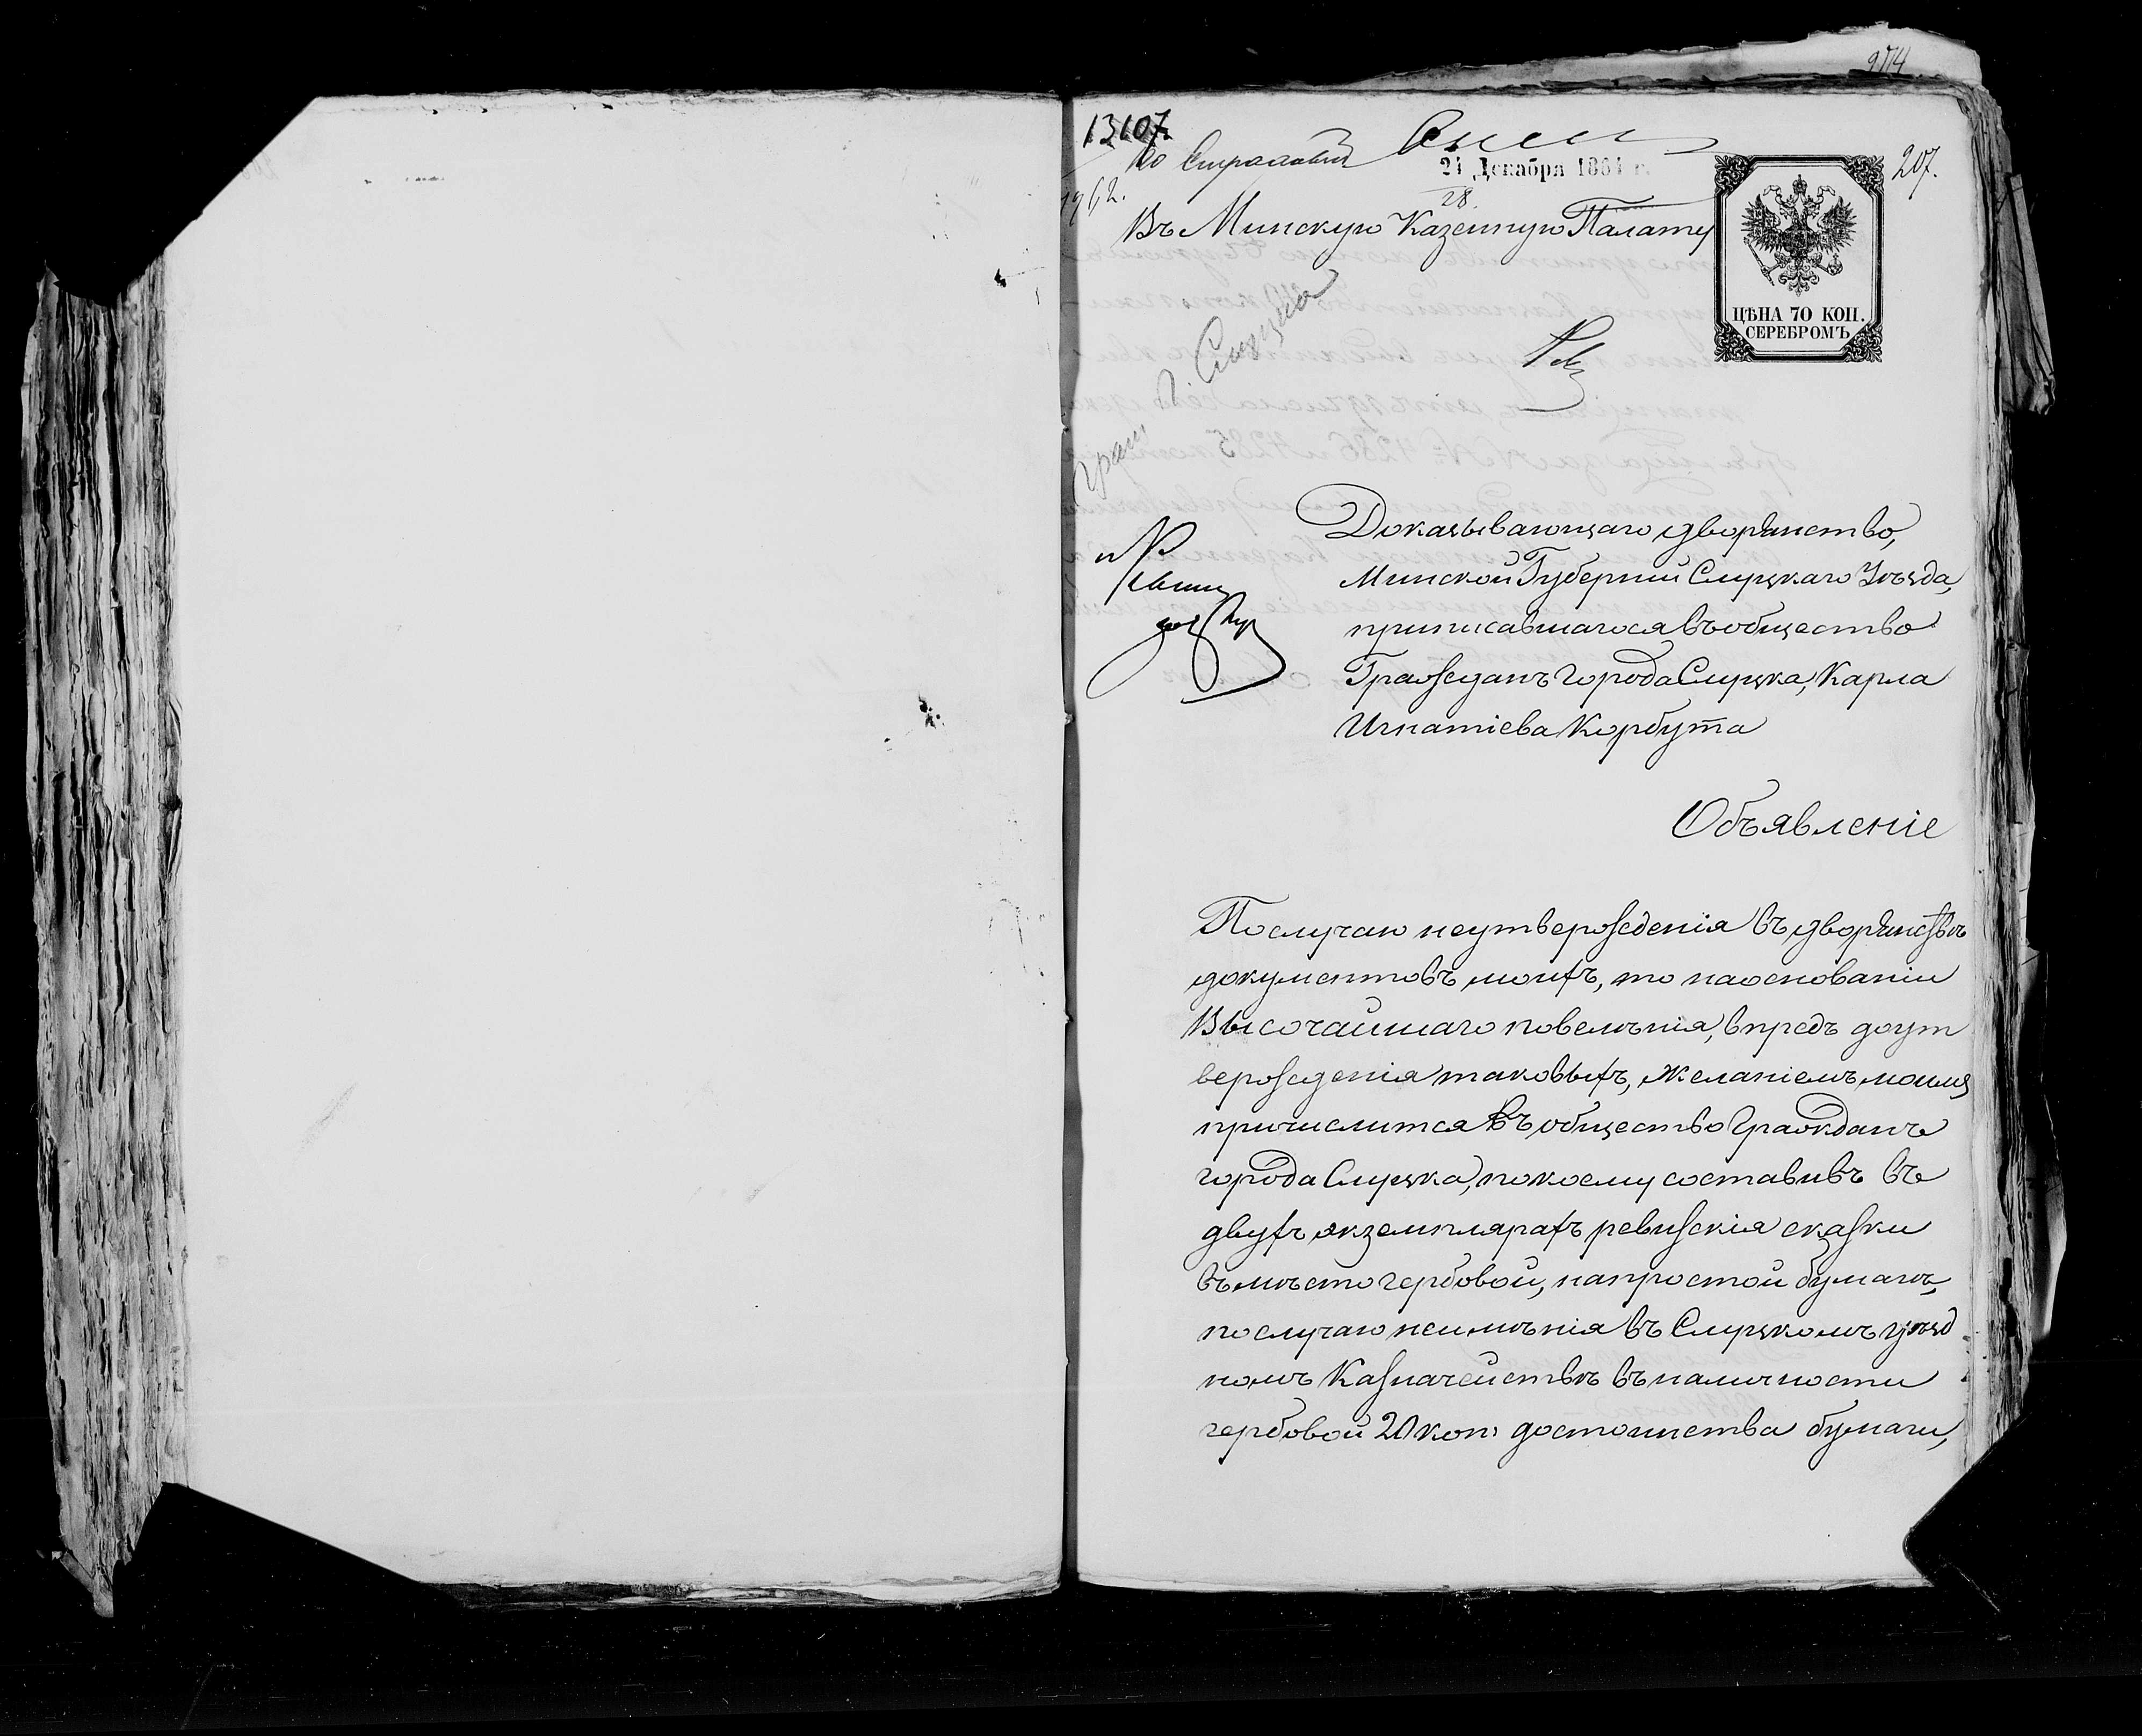 274
13107
207.
21 Декабря 1864 г.
28.
Въ Минскую Казенную Палату
ЦѢНА 70 КОП.
СЕРЕБРОМЪ
Граж. г. Слуцка
Доказывающаго дворянство,
Минской Губерніи Слуцкаго Уѣзда,
приписавшагося въ общество
Гражданъ города Слуцка, Карла
Игнатіева Корбута
Объявленіе
По случаю неутвержденія въ дворянствѣ
документовъ моихъ, то на основаніи
Высочайшаго повелѣнія, впредь до ут
вержденія таковыхъ, желаніемъ моимъ
причислится въ общество Гражданъ
города Слуцка, по коему составивъ въ
двухъ экземплярахъ ревизскія сказки
въмѣсто гербовой, на простой бумагѣ,
по случаю неимѣнія въ Слуцкомъ уѣзд
номъ Казначействѣ въ наличности
гербовой 20 коп: достоинства бумаги,